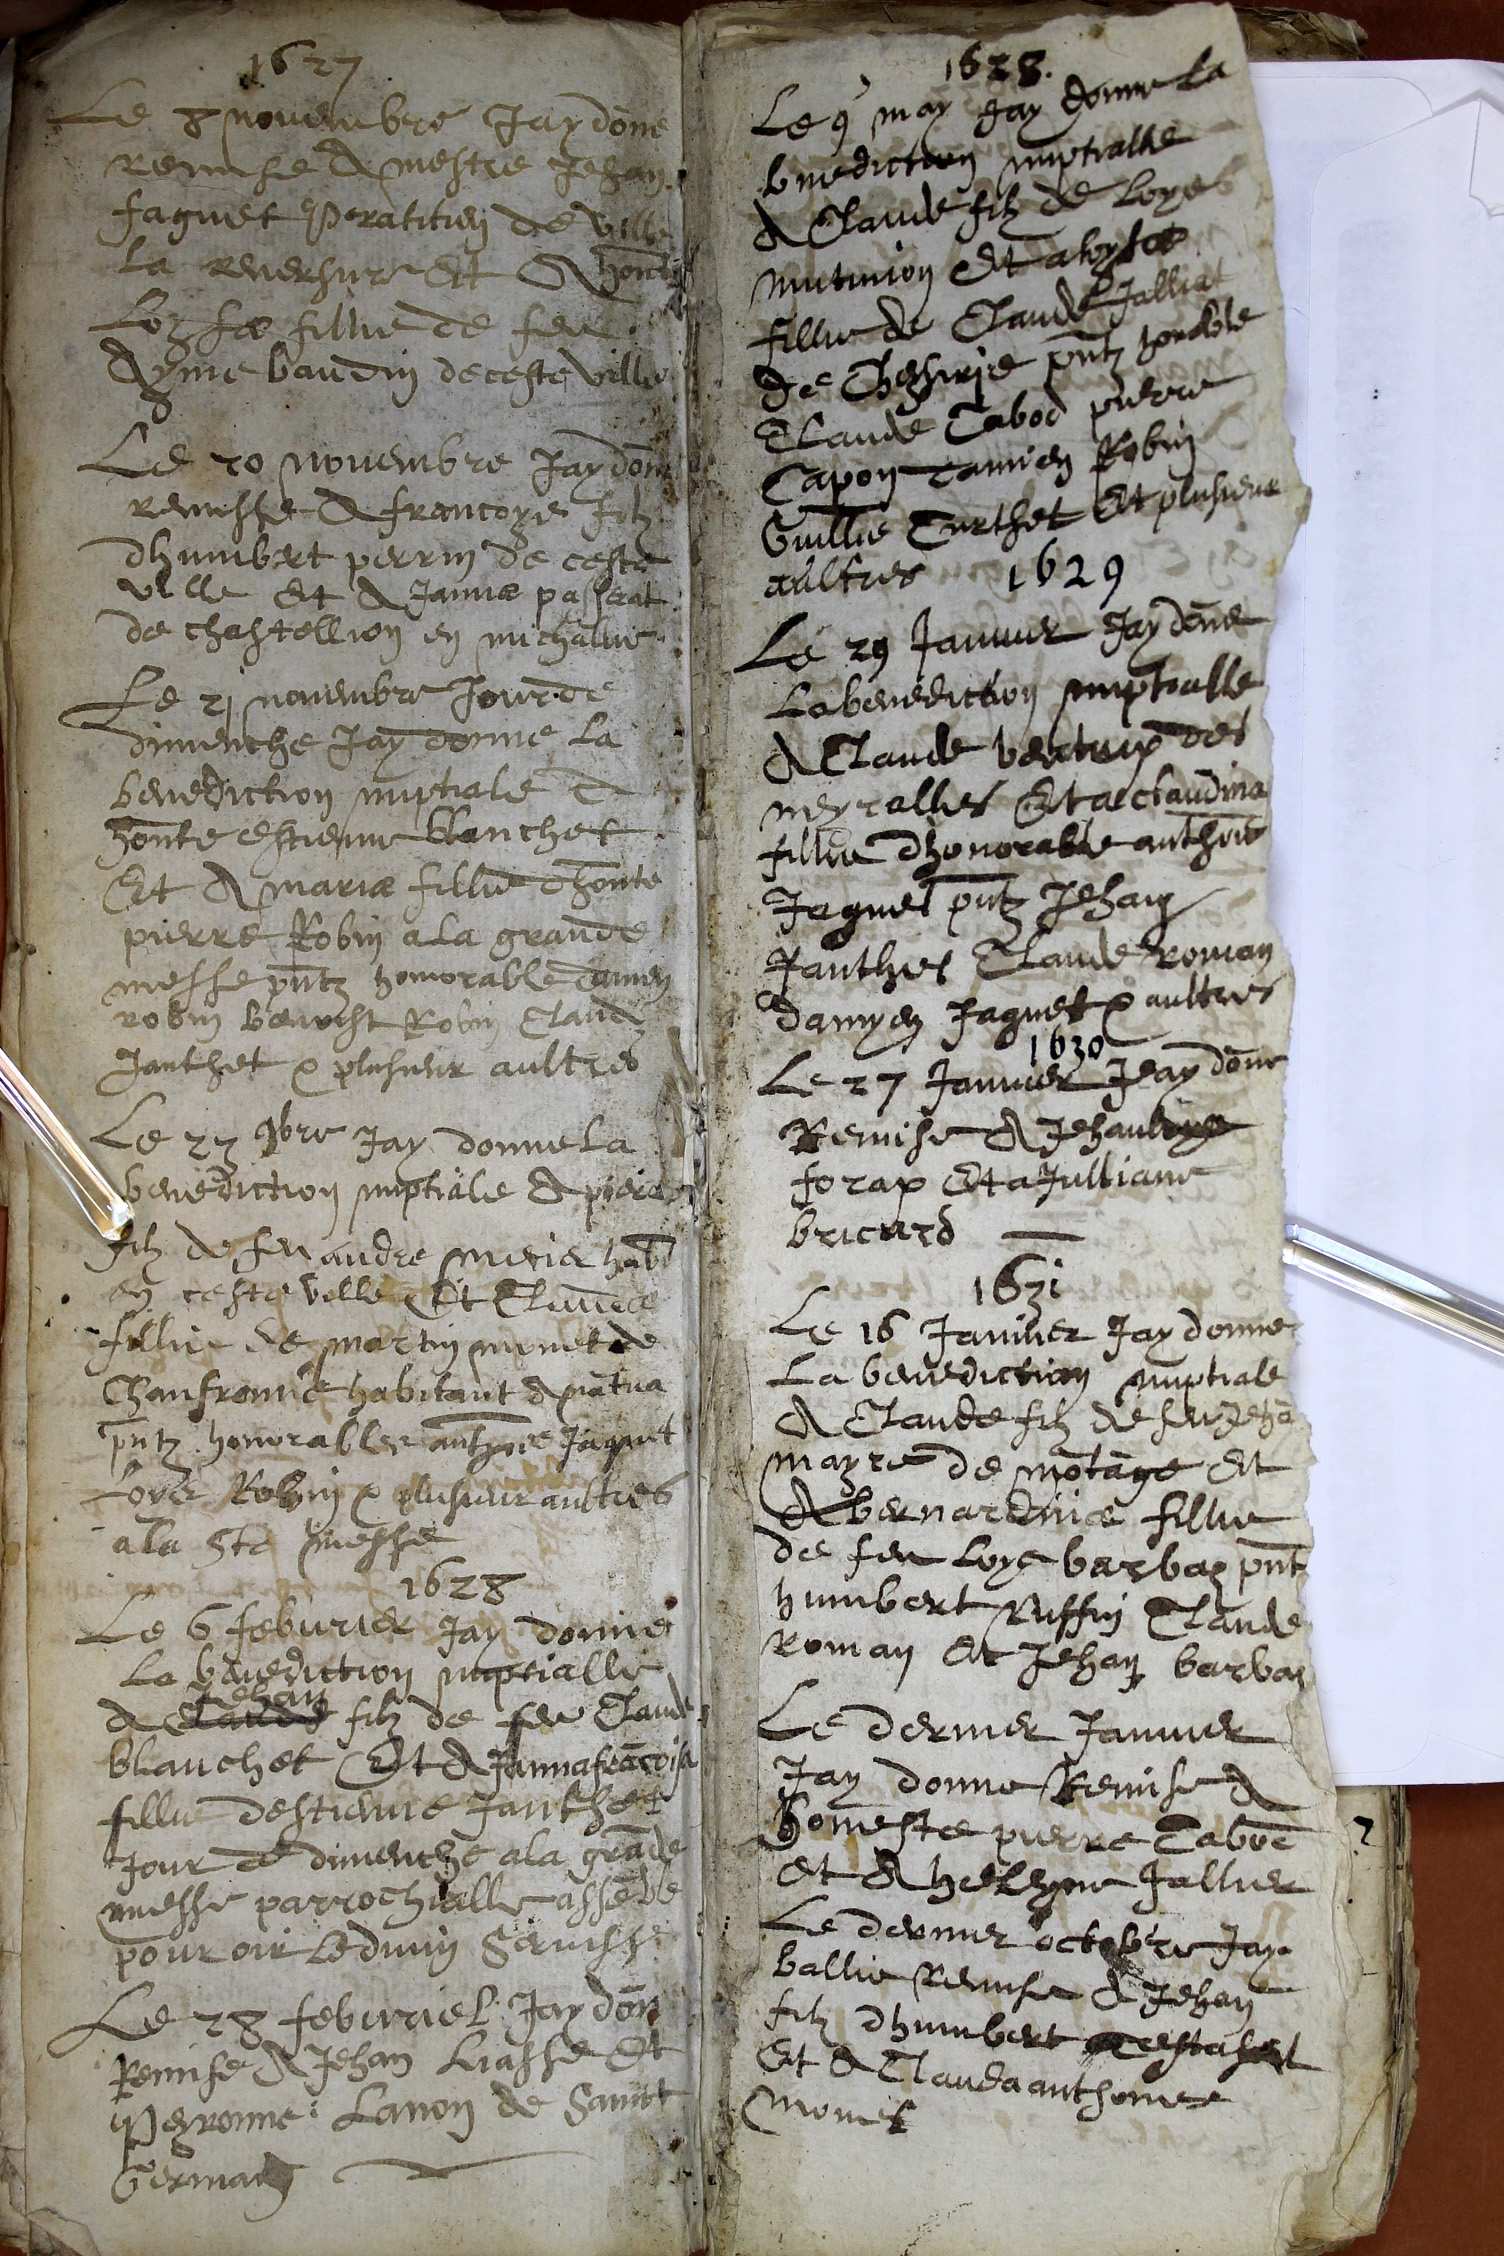 1627
Le 8 novembre Jay doné
remise A mestre Jehan
faguet praticien de ville
la reversure Et A honte
Loyse fillie de feu
Ayme baudin de ceste ville
Le 20 novembre Jay doné
remisse A francoys filz
dhumbert perrin de ceste
ville Et A Janna passerat
de chastellion en michalie
Le 21 novembre Jour de
dimenche Jay donne la
benediction nuptiale A
honte estienne blanchet
Et A maria fillie dhonte
pierre Robin a la grande
messe pntz honnorable damien
robin benoist Robin Claude
Janthet & plusieur aultres
Le 27 9bre Jay donne la
benediction nuptiale A piere
filz de feu andre habt
en ceste ville Et Claudea
fillie de martin monet de
Chanfromie habitant A nantua
pntz honorables anthoine Jaquet
Loys Robin & plusieur aultres
a la Ste messe
1628
Le 6 feburier Jay donne
la benediction nuptialle
Jehan
A Claude filz de feu Claude
blanchet Et A Janna francoisa
fillie destienne Janthet
Jour de dimenche a la grande
messe parrochialle assemble
pour oir le divin servisse
Le 28 feburier Jay don
Remise A Jehan Et
Peyronne Lanon de Sainct
Germain
1628.
Le 9 may Jay donne la
benediction nuptialle
A Claude filz de Loys
mutinion Et a loysa
fillie de Claude Jalliat
de Chesirye pntz honorable
Claude Tabod pierre
Capon Damien Robin
Guillie Curthet Et plusieur
aultres 1629
Le 29 Janvier Jay doné
La benediction nuptialle
A Claude bertrix des
neyrolles Et a claudina
fillie dhonorable anthoine
Jaquet pntz Jehan
Janthet Claude roman
damyen Jaquet & aultres
1630
Le 27 Janvier Jeay donne
Remise A Jehan loys
forax Et a Julliane
bricard
1631
Le 16 Janvier Jay donne
La benediction nuptiale
A Claude filz de feu Jehan
mayre de montange Et
A bernardina fillie
de feu Loys barbaz pntz
humbert Ruffin Claude
Roman Et Jehan barbaz
Le dernier Janvier
Jay donne Remise A
honneste pierre Tabod
Et A heleyne Jallier
Le dernier octobre Jay
ballie Remise A Jehan
filz dhumbert
Et A Clauda anthonie
monet